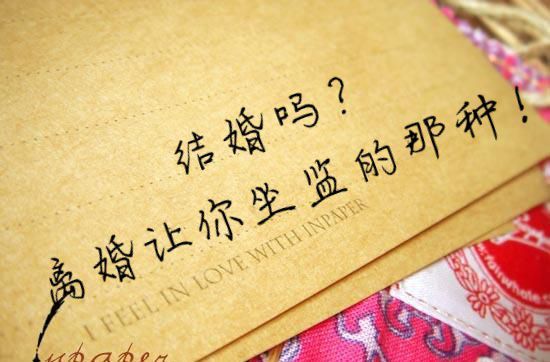 结婚吗？
离婚让你坐监的那种！
I FEEL IN LOVE WITH INPAPER